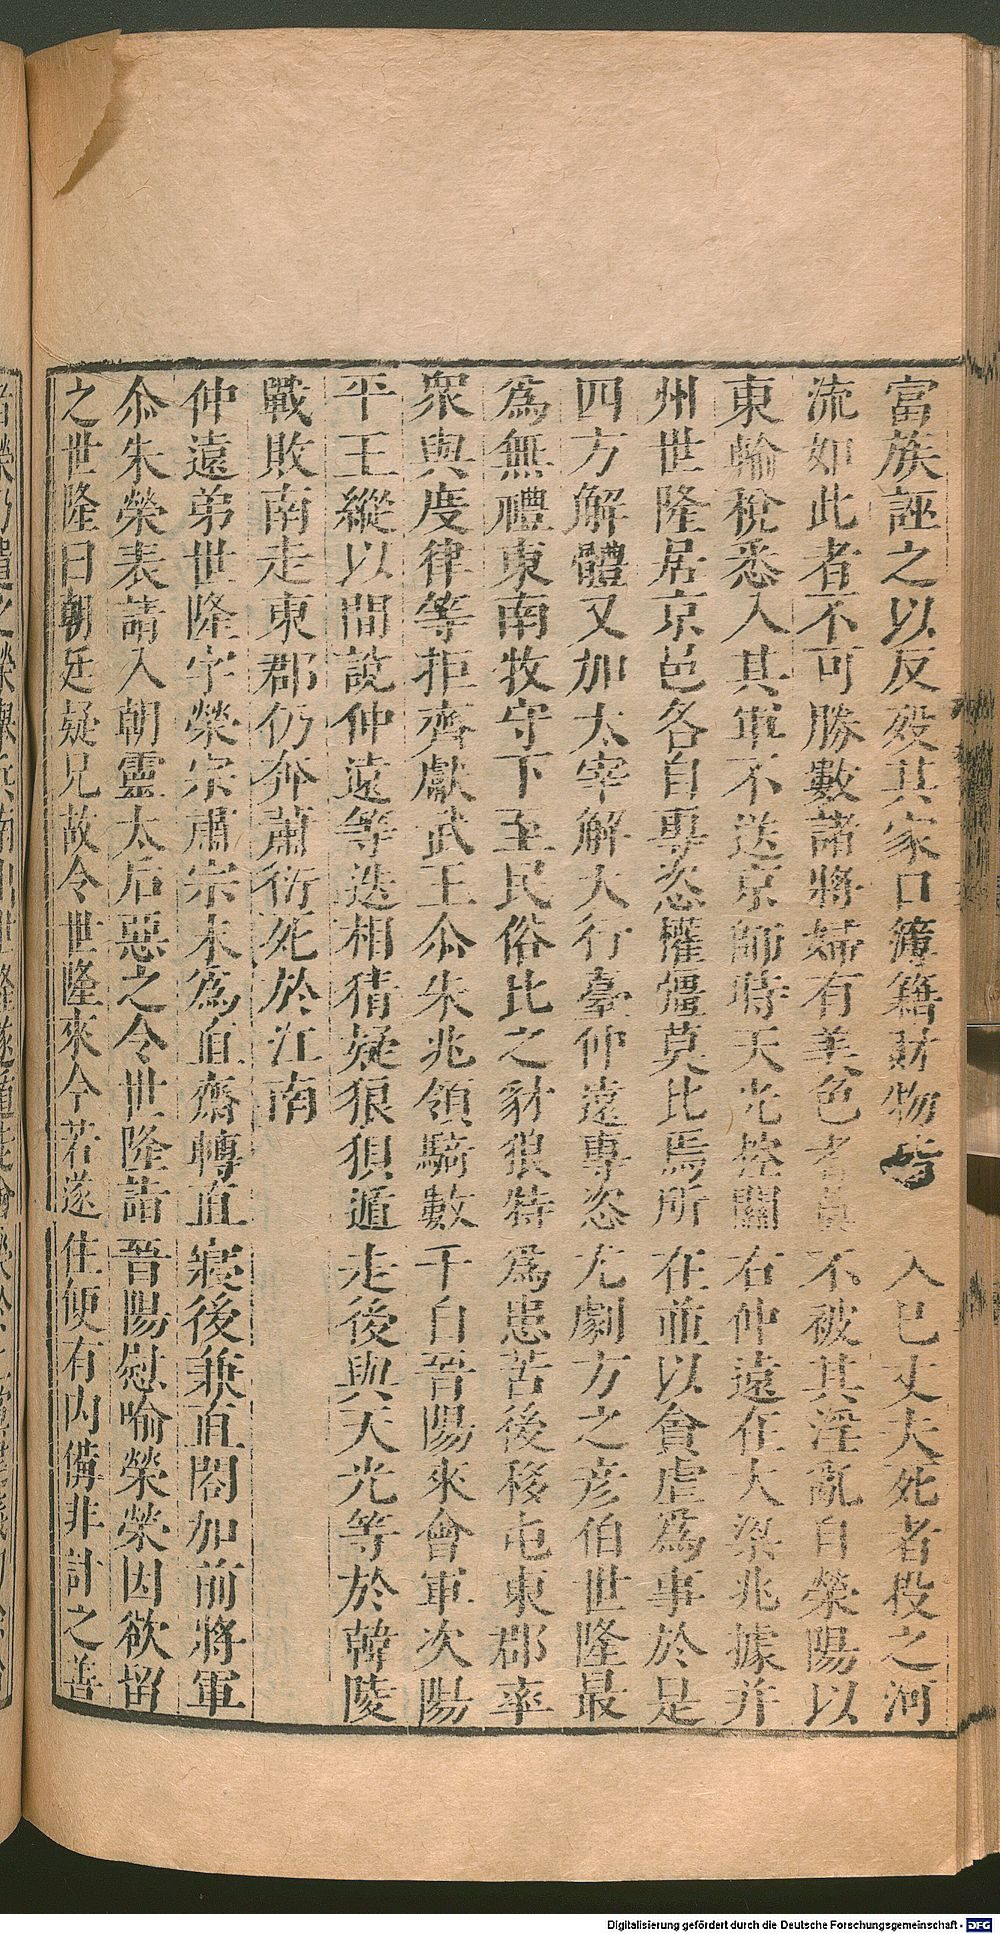 富族誣之以反殁其家口簿籍財物皆入巳丈夫死者投之河
流如此者不可勝數諸將婦有美色者莫不被其淫亂自榮陽以
東輸稅悉入其軍不送京師時天光控關右仲遠在大梁兆據并
州世隆居京邑各自專恣權彊莫比焉所在並以貪虐爲事於是
四方解體又加太宰解大行臺仲遠專恣尤劇方之彦伯世隆最
爲無禮東南牧守下至民俗比之豺狼特爲患苦後移屯東郡率
衆與度律等拒齊獻武王尒朱兆領騎數千自晉陽來會軍次陽
平王縱以間說仲遠等迭相猜疑狼狽遁走後與天光等於韓陵
戰敗南走東郡仍奔蕭衍死於江南
仲遠弟世隆字榮宗肅宗末爲直齋轉直寢後兼直閤加前將軍
尒朱榮表請入朝靈太后惡之令世隆詣晉陽慰喻榮榮因欲留
之世隆曰朝廷疑兄故令世隆來今若遂住便有内備非計之善
Digitalisierung gefördert durch die Deutsche Forschungsgemeinschaft - DFG